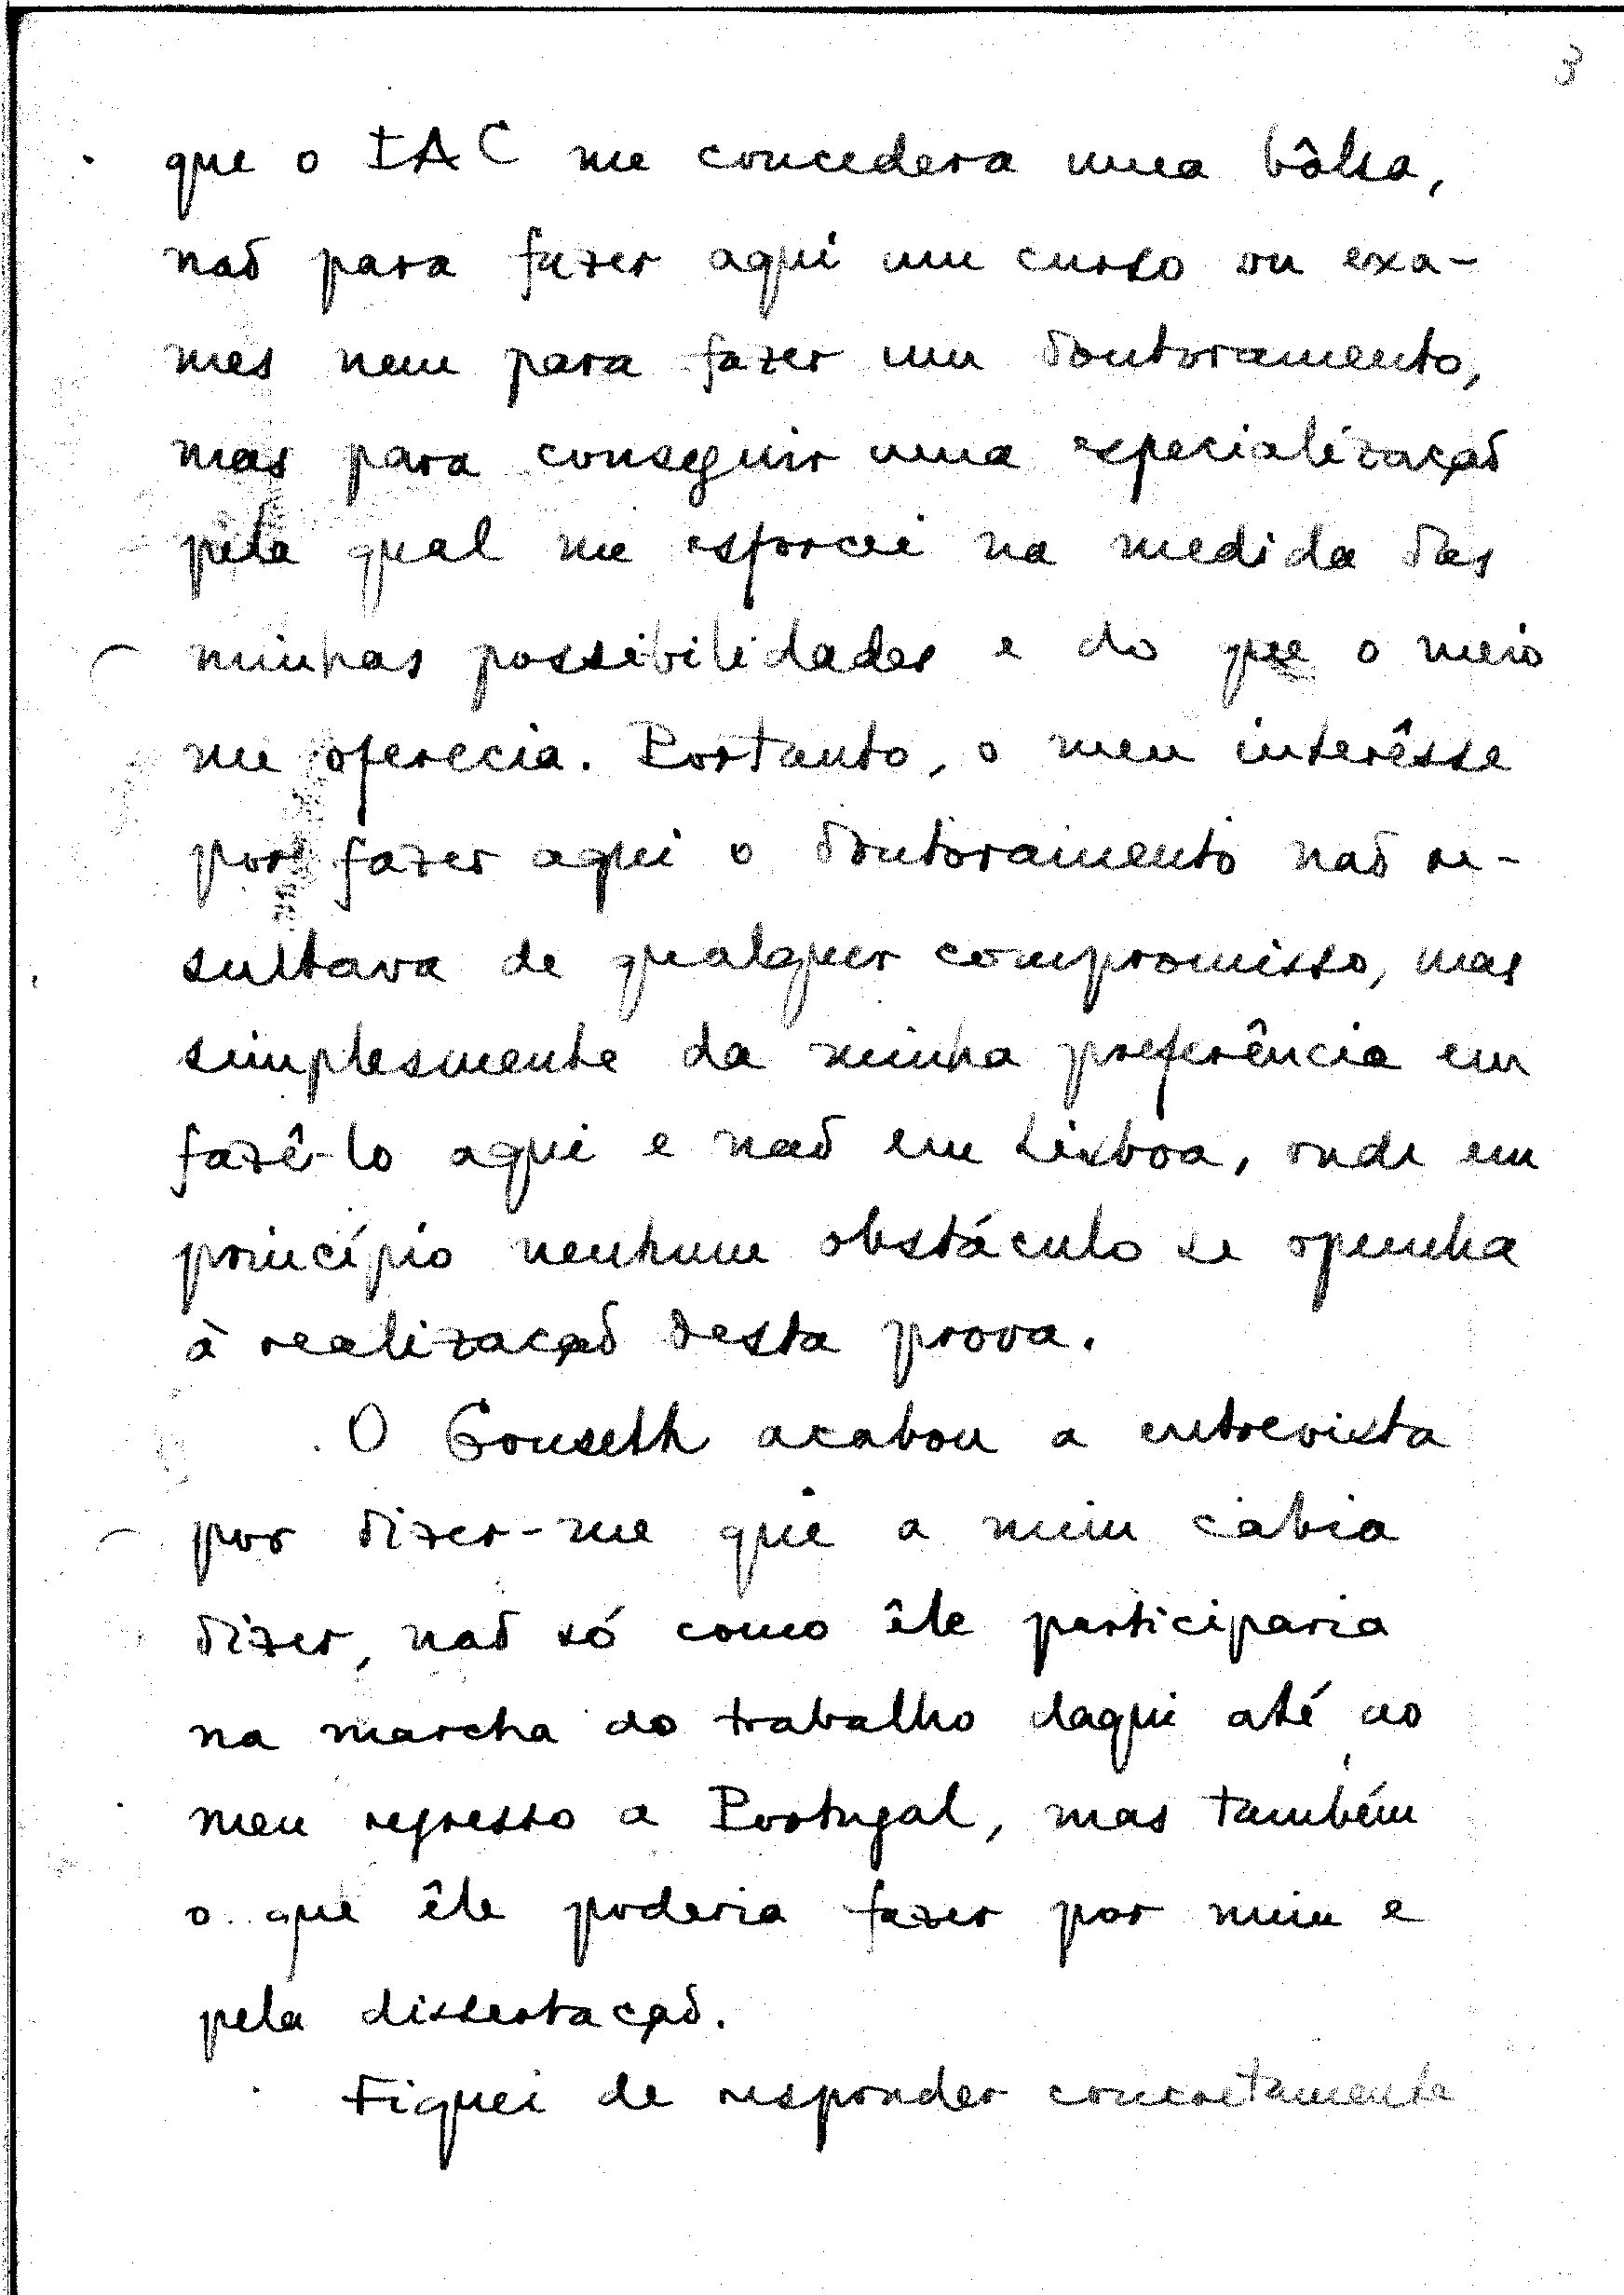 3
que o IAC me concedera uma bôlsa,
não para fazer aqui um curso ou exa-
mes nem para fazer um doutoramento,
mas para conseguir uma especialização
pela qual me esforcei na medida das
minhas possibilidades e do que o meio
me oferecia. Portanto, o meu interêsse
por fazer aqui o doutoramento não re-
sultava de qualquer compromisso, mas
simplesmente da minha preferência em
fazê-lo aqui e não em Lisboa, onde em
princípio nenhum obstáculo se opunha
à realização desta prova.
O Gonseth acabou a entrevista
por dizer-me que a mim cabia
dizer, não só como êle participaria
na marcha do trabalho daqui até ao
meu regresso a Portugal, mas também
o que êle poderia fazer por mim e
pela dissertação.
Fiquei de responder concretamente